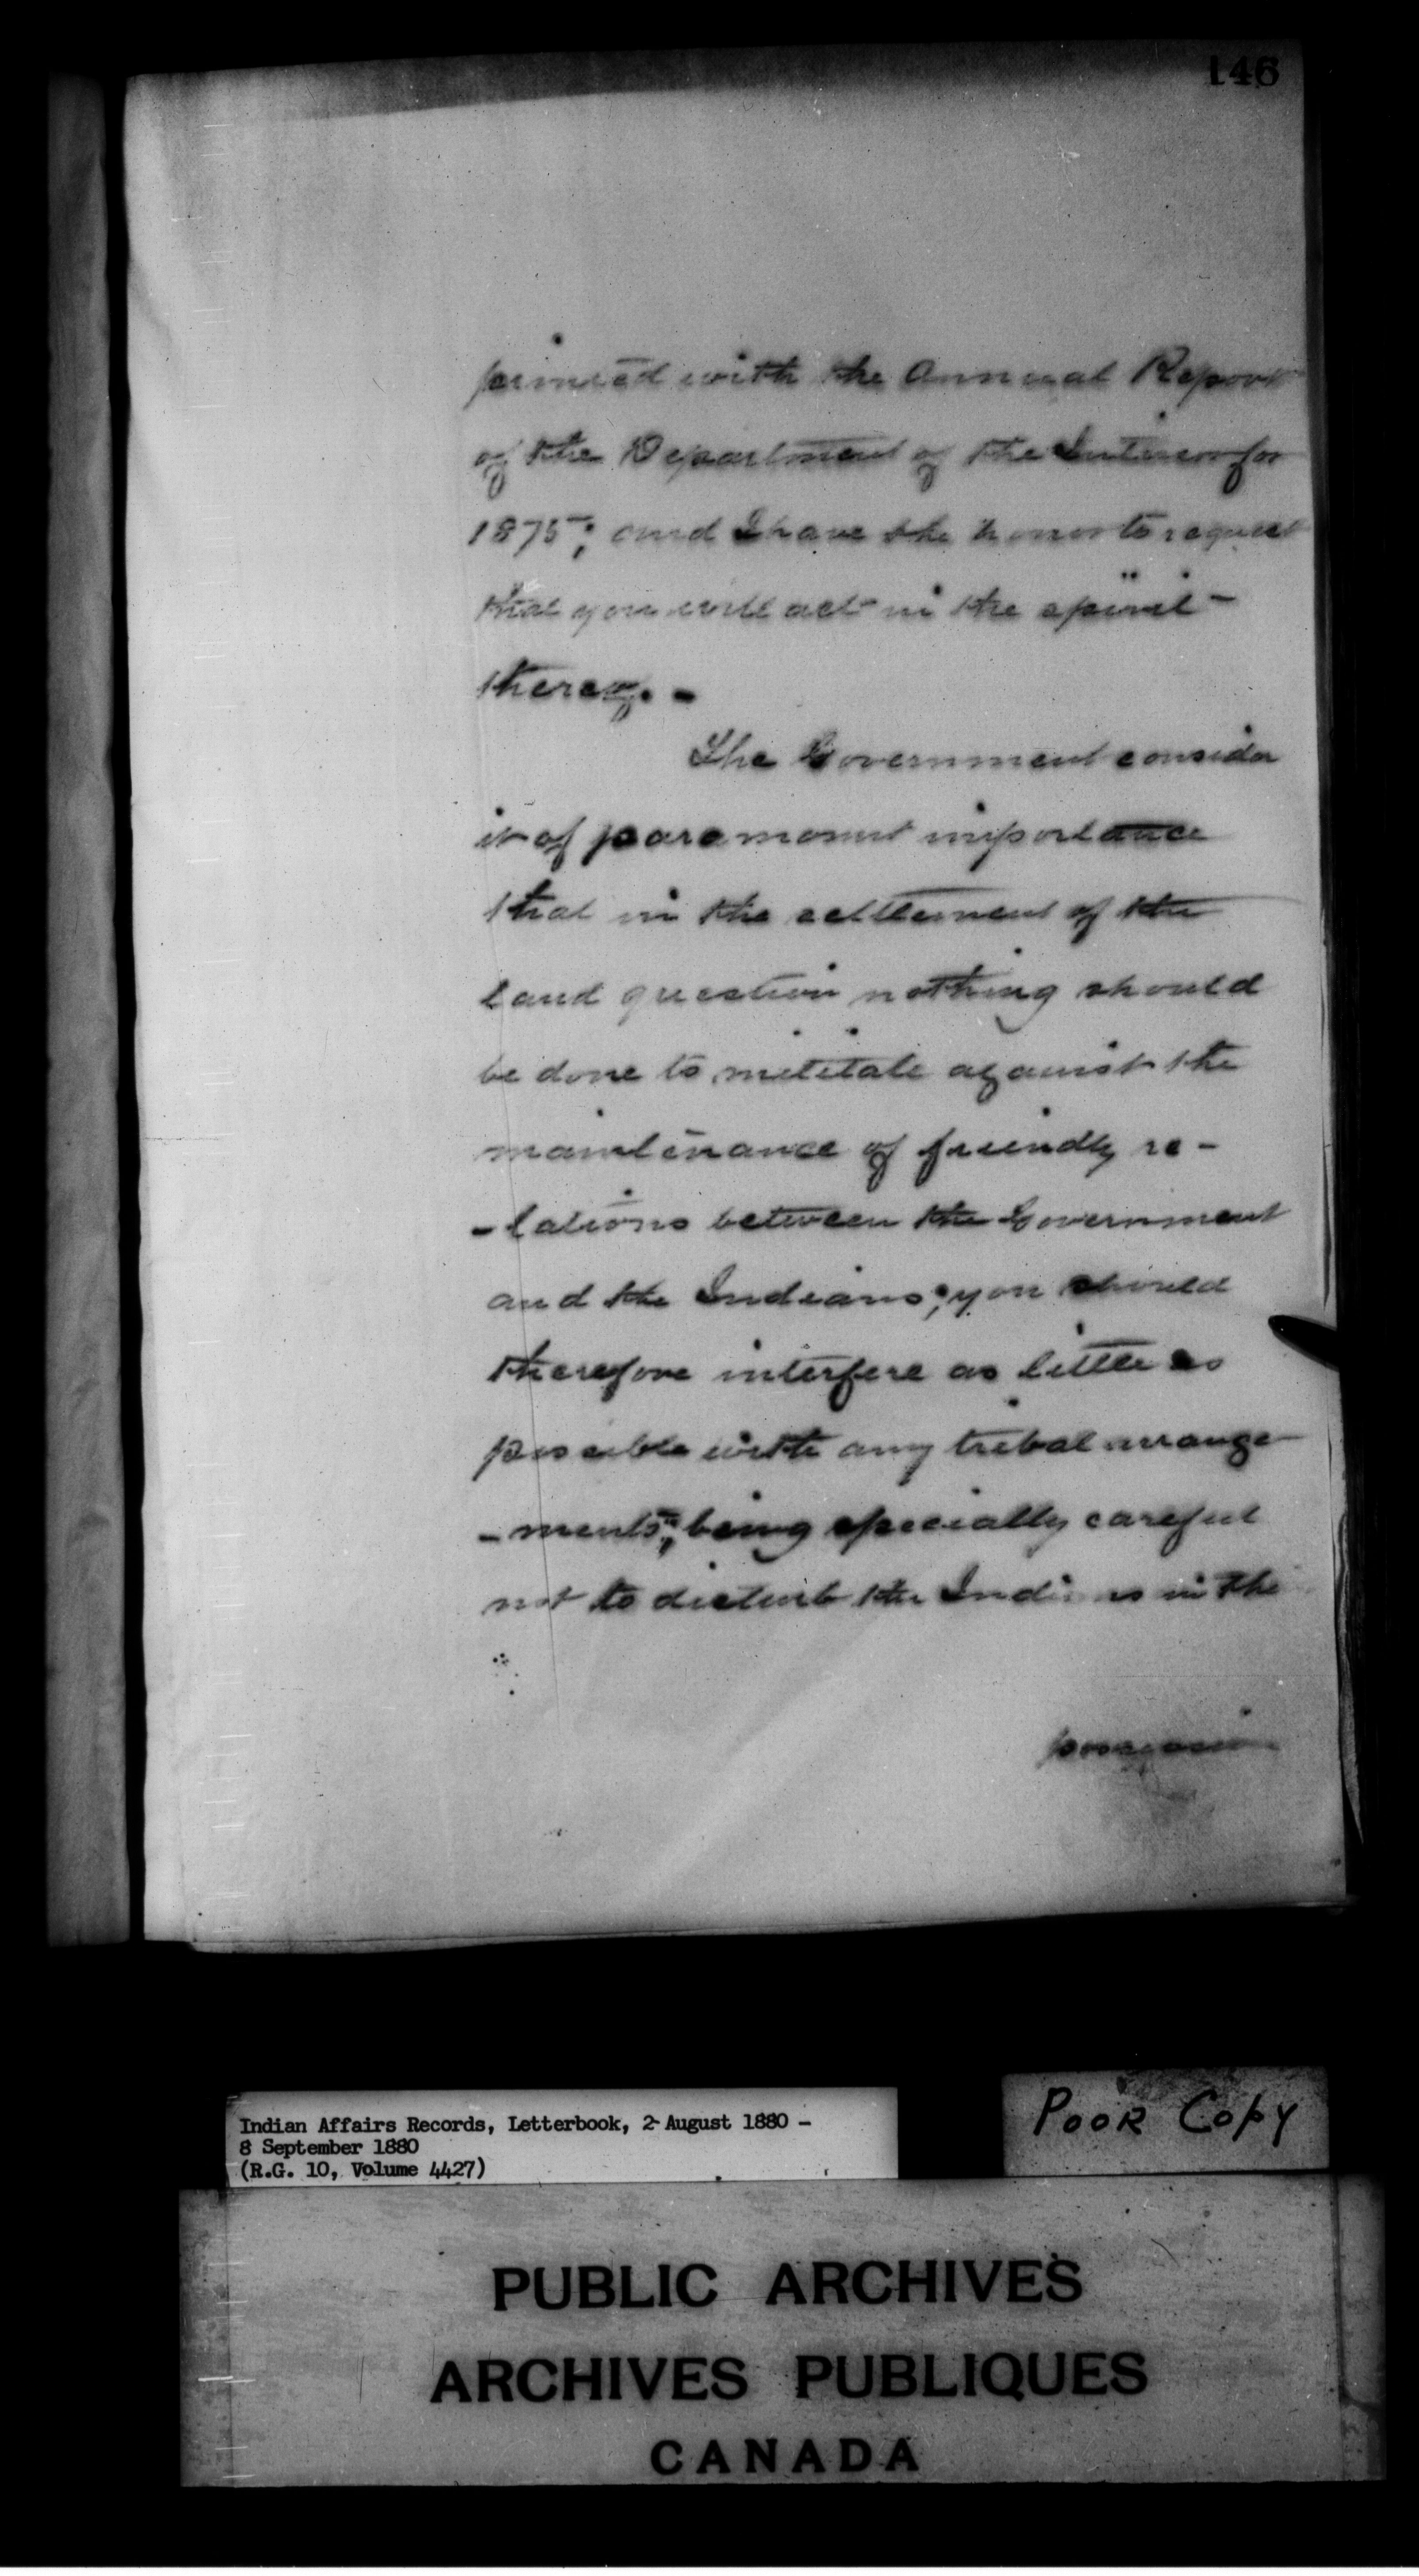 146
printed with the Annual Report
of the Department of the Interior for
1875; and I have the honor to request
that you will act in the spirit
thereof. -
The Government consider
it of paramount importance
that in the settlement of the
land question nothing should
be done to militate against the
maintenance of friendly re-
-lations between the Government
and the Indians; you should
therefore interfere as little as
possible with any tribal arrange
-ments; being specially careful
not to disturb the Indians in the
possession
Indian Affairs Records, Letterbook, 2 August 1880 -
8 September 1880
(R.G. 10, Volume 4427)
POOR COPY
PUBLIC ARCHIVES
ARCHIVES PUBLIQUES
CANADA